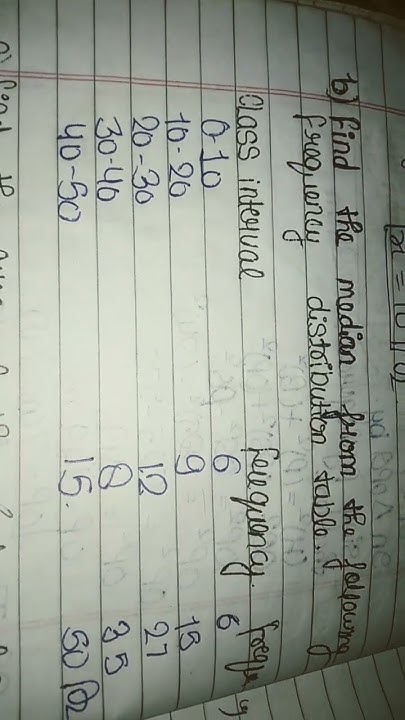 b) Find the median from the following
frequency distribution table.
Class interval frequency.
0-10 6 6
10-20 9 15
20-30 12 27
30-40 8 35
40-50 15. 50